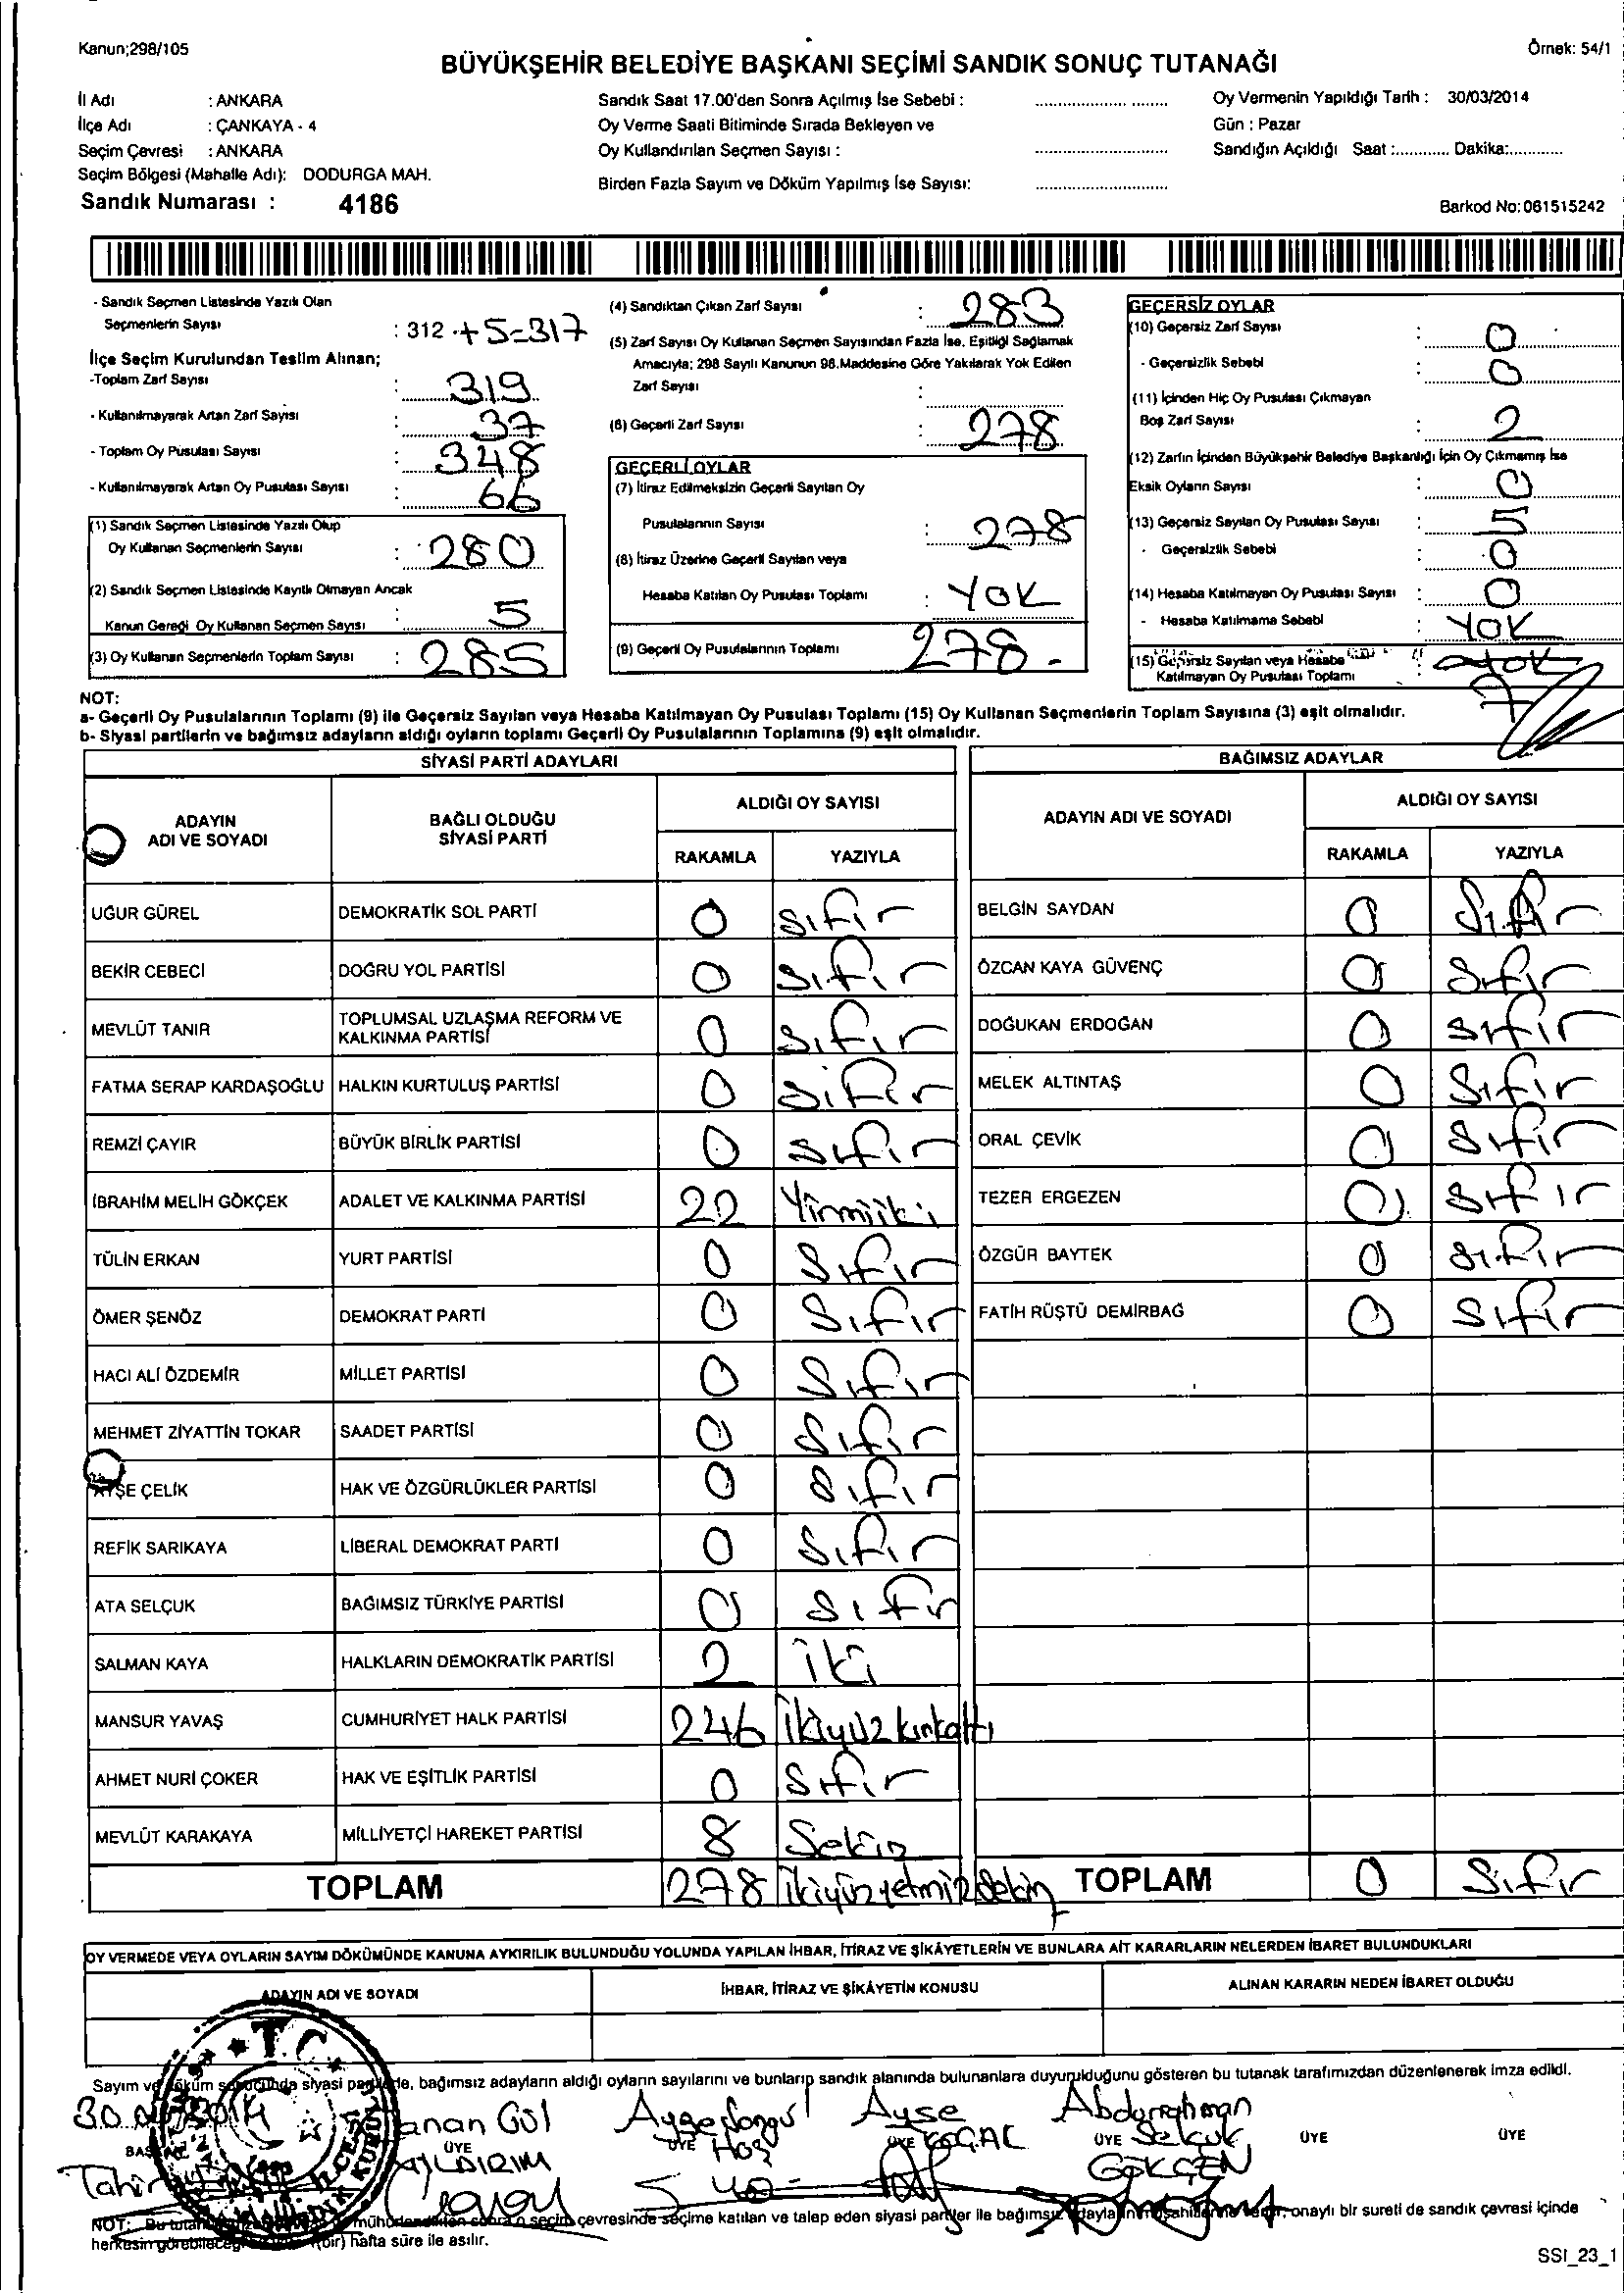 Kanun;298/105
Örnek: 54/1
BÜYÜKŞEHİR BELEDİYE BAŞKANI SEÇİMİ SANDIK SONUÇ TUTANAĞI
İl Adı : ANKARA
İlçe Adı : ÇANKAYA - 4
Seçim Çevresi : ANKARA
Seçim Bölgesi (Mahalle Adı): DODURGA MAH.
Sandık Numarası : 4186
Sandık Saat 17.00'den Sonra Açılmış İse Sebebi :
Oy Verme Saati Bitiminde Sırada Bekleyen ve
Oy Kullandırılan Seçmen Sayısı :
Birden Fazla Sayım ve Döküm Yapılmış İse Sayısı:
Oy Vermenin Yapıldığı Tarih : 30/03/2014
Gün : Pazar
Sandığın Açıldığı Saat :............ Dakika:............
Barkod No: 061515242
- Sandık Seçmen Listesinde Yazılı Olan
Seçmenlerin Sayısı : 312 + 5 = 317
İlçe Seçim Kurulundan Teslim Alınan;
-Toplam Zarf Sayısı : 319
- Kullanılmayarak Artan Zarf Sayısı : 37
- Toplam Oy Pusulası Sayısı : 348
- Kullanılmayarak Artan Oy Pusulası Sayısı : 66
(1) Sandık Seçmen Listesinde Yazılı Olup
Oy Kullanan Seçmenlerin Sayısı : 280
(2) Sandık Seçmen Listesinde Kayıtlı Olmayan Ancak
Kanun Gereği Oy Kullanan Seçmen Sayısı : 5
(3) Oy Kullanan Seçmenlerin Toplam Sayısı : 285
(4) Sandıktan Çıkan Zarf Sayısı : 283
(5) Zarf Sayısı Oy Kullanan Seçmen Sayısından Fazla İse, Eşitliği Sağlamak
Amacıyla; 298 Sayılı Kanunun 98.Maddesine Göre Yakılarak Yok Edilen
Zarf Sayısı :
(6) Geçerli Zarf Sayısı : 278
GEÇERLİ OYLAR
(7) İtiraz Edilmeksizin Geçerli Sayılan Oy
Pusulalarının Sayısı : 278
(8) İtiraz Üzerine Geçerli Sayılan veya
Hesaba Katılan Oy Pusulası Toplamı : YOK
(9) Geçerli Oy Pusulalarının Toplamı 278.-
GEÇERSİZ OYLAR
(10) Geçersiz Zarf Sayısı : 0
- Geçersizlik Sebebi : 0
(11) İçinden Hiç Oy Pusulası Çıkmayan
Boş Zarf Sayısı : 2
(12) Zarfın İçinden Büyükşehir Belediye Başkanlığı İçin Oy Çıkmamış İse
Eksik Oyların Sayısı : 0
(13) Geçersiz Sayılan Oy Pusulası Sayısı : 5
- Geçersizlik Sebebi : 0
(14) Hesaba Katılmayan Oy Pusulası Sayısı : 0
- Hesaba Katılmama Sebebi : YOK
(15) Geçersiz Sayılan veya Hesaba
Katılmayan Oy Pusulası Toplamı : YOK
7
NOT:
a- Geçerli Oy Pusulalarının Toplamı (9) ile Geçersiz Sayılan veya Hesaba Katılmayan Oy Pusulası Toplamı (15) Oy Kullanan Seçmenlerin Toplam Sayısına (3) eşit olmalıdır.
b- Siyasi partilerin ve bağımsız adayların aldığı oyların toplamı Geçerli Oy Pusulalarının Toplamına (9) eşit olmalıdır.
SİYASİ PARTİ ADAYLARI
ADAYIN ADI VE SOYADI
BAĞLI OLDUĞU SİYASİ PARTİ
ALDIĞI OY SAYISI
RAKAMLA YAZIYLA
UĞUR GÜREL DEMOKRATİK SOL PARTİ 0 sıfır
BEKİR CEBECİ DOĞRU YOL PARTİSİ 0 sıfır
MEVLÜT TANIR TOPLUMSAL UZLAŞMA REFORM VE KALKINMA PARTİSİ 0 sıfır
FATMA SERAP KARDAŞOĞLU HALKIN KURTULUŞ PARTİSİ 0 sıfır
REMZİ ÇAYIR BÜYÜK BİRLİK PARTİSİ 0 sıfır
İBRAHİM MELİH GÖKÇEK ADALET VE KALKINMA PARTİSİ 22 Yirmiiki
TÜLİN ERKAN YURT PARTİSİ 0 Sıfır
ÖMER ŞENÖZ DEMOKRAT PARTİ 0 Sıfır
HACI ALİ ÖZDEMİR MİLLET PARTİSİ 0 Sıfır
MEHMET ZİYATTİN TOKAR SAADET PARTİSİ 0 Sıfır
AYŞE ÇELİK HAK VE ÖZGÜRLÜKLER PARTİSİ 0 Sıfır
REFİK SARIKAYA LİBERAL DEMOKRAT PARTİ 0 Sıfır
ATA SELÇUK BAĞIMSIZ TÜRKİYE PARTİSİ 0 Sıfır
SALMAN KAYA HALKLARIN DEMOKRATİK PARTİSİ 2 iki
MANSUR YAVAŞ CUMHURİYET HALK PARTİSİ 246 ikiyüzkırkaltı
AHMET NURİ ÇOKER HAK VE EŞİTLİK PARTİSİ 0 Sıfır
MEVLÜT KARAKAYA MİLLİYETÇİ HAREKET PARTİSİ 8 Sekiz
TOPLAM 278 ikiyüzyetmişsekiz
BAĞIMSIZ ADAYLAR
ADAYIN ADI VE SOYADI
ALDIĞI OY SAYISI
RAKAMLA YAZIYLA
BELGİN SAYDAN 0 Sıfır
ÖZCAN KAYA GÜVENÇ 0 Sıfır
DOĞUKAN ERDOĞAN 0 Sıfır
MELEK ALTINTAŞ 0 Sıfır
ORAL ÇEVİK 0 Sıfır
TEZER ERGEZEN 0 Sıfır
ÖZGÜR BAYTEK 0 Sıfır
FATİH RÜŞTÜ DEMİRBAĞ 0 Sıfır
TOPLAM 0 Sıfır
OY VERMEDE VEYA OYLARIN SAYIM DÖKÜMÜNDE KANUNA AYKIRILIK BULUNDUĞU YOLUNDA YAPILAN İHBAR, İTİRAZ VE ŞİKÂYETLERİN VE BUNLARA AİT KARARLARIN NELERDEN İBARET BULUNDUKLARI
ADAYIN ADI VE SOYADI
İHBAR, İTİRAZ VE ŞİKÂYETİN KONUSU
ALINAN KARARIN NEDEN İBARET OLDUĞU
T.C.
Sayım ve döküm sonucunda siyasi partilerle, bağımsız adayların aldığı oyların sayılarını ve bunların sandık alanında bulunanlara duyurulduğunu gösteren bu tutanak tarafımızdan düzenlenerek imza edildi.
Canan Gül Ayşe Songül Ayşe Abdurrahman
ÜYE ÜYE HOŞ ÜYE KOÇAK ÜYE Selçuk ÜYE ÜYE
YILDIRIM GÖKÇEN
Tahir
NOT: sonra o seçim çevresinde seçime katılan ve talep eden siyasi partiler ile bağımsız onaylı bir sureti de sandık çevresi içinde
herkesin (bir) hafta süre ile asılır.
SSI_23_1